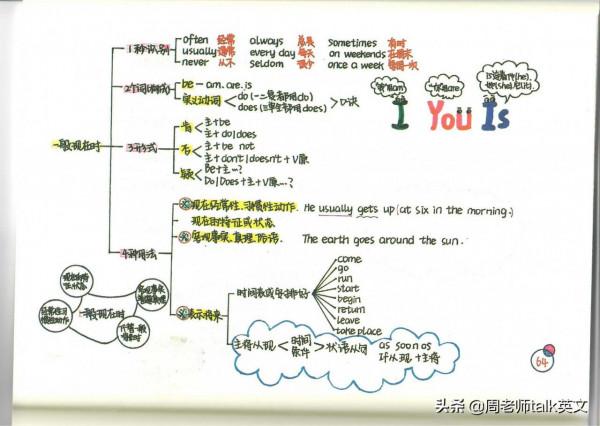 often 经常 always 总是 sometimes 有时
1种识别 usually 通常 every day 每天 on weekends 在周末
never 从不 seldom 很少 once a week 每周一次
2个词构成 be－am.are.is
实义动词 do(一二复者用do)
does(三单者用does) 口诀
"我"用am "你"用are
I You Is
一般现在时
3种形式
肯 主+be
主+do/does
否 主+be not
主+don't/doesn't+V原
疑 Be+主…?
Do/Does+主+V原…?
4种用法
现在经常性、习惯性动作. He usually gets up (at six in the morning.)
现在的特征或状态
客观事实、真理、谚语. The earth goes around the sun.
表示将来
时间表或安排好
come
go
run
start
begin
return
leave
take place
主将从现 时间 条件 状语从句 as soon as
If从现+主将
现在的特征状态
客观事实
经常性习惯性动作
一般现在时
64
头条 @周老师talk英文